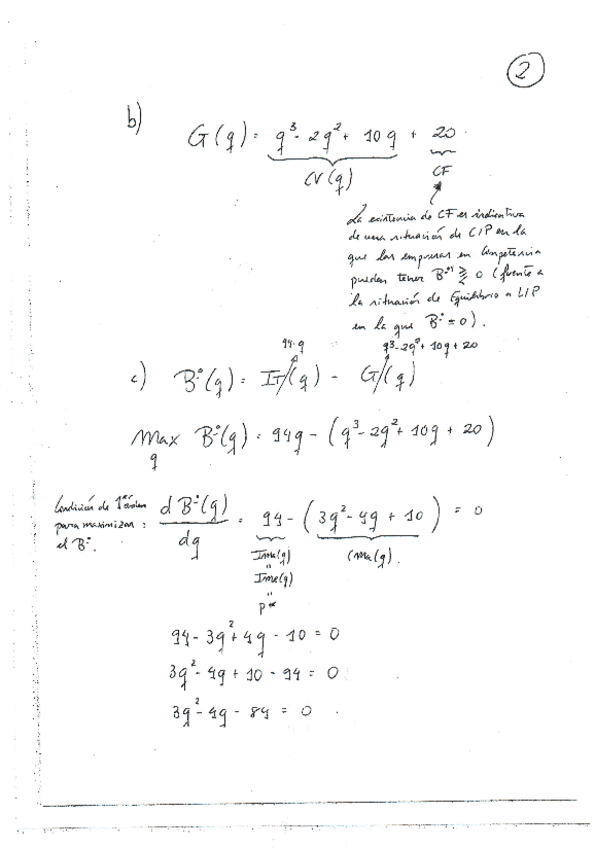 2
b)
G(q) = q³ - 2q² + 10q + 20
CV(q)
CF
La existencia de CF es indicativa
de una situación de C/P en la
que las empresas en Competencia
pueden tener Bº ⋛ 0 (frente a
la situación de Equilibrio a L/P
en la que Bº = 0).
94·q
q³-2q²+10q+20
c) Bº(q) = IT(q) - G(q)
Max Bº(q) = 94q - (q³-2q²+10q+20)
q
Condición de 1er orden
para maximizar
el Bº:
d Bº(q)
dq
= 94 - (3q²-4q+10) = 0
Ima(q)
"
Ime(q)
"
p*
Cma(q).
94 - 3q² + 4q - 10 = 0
3q² - 4q + 10 - 94 = 0
3q² - 4q - 84 = 0